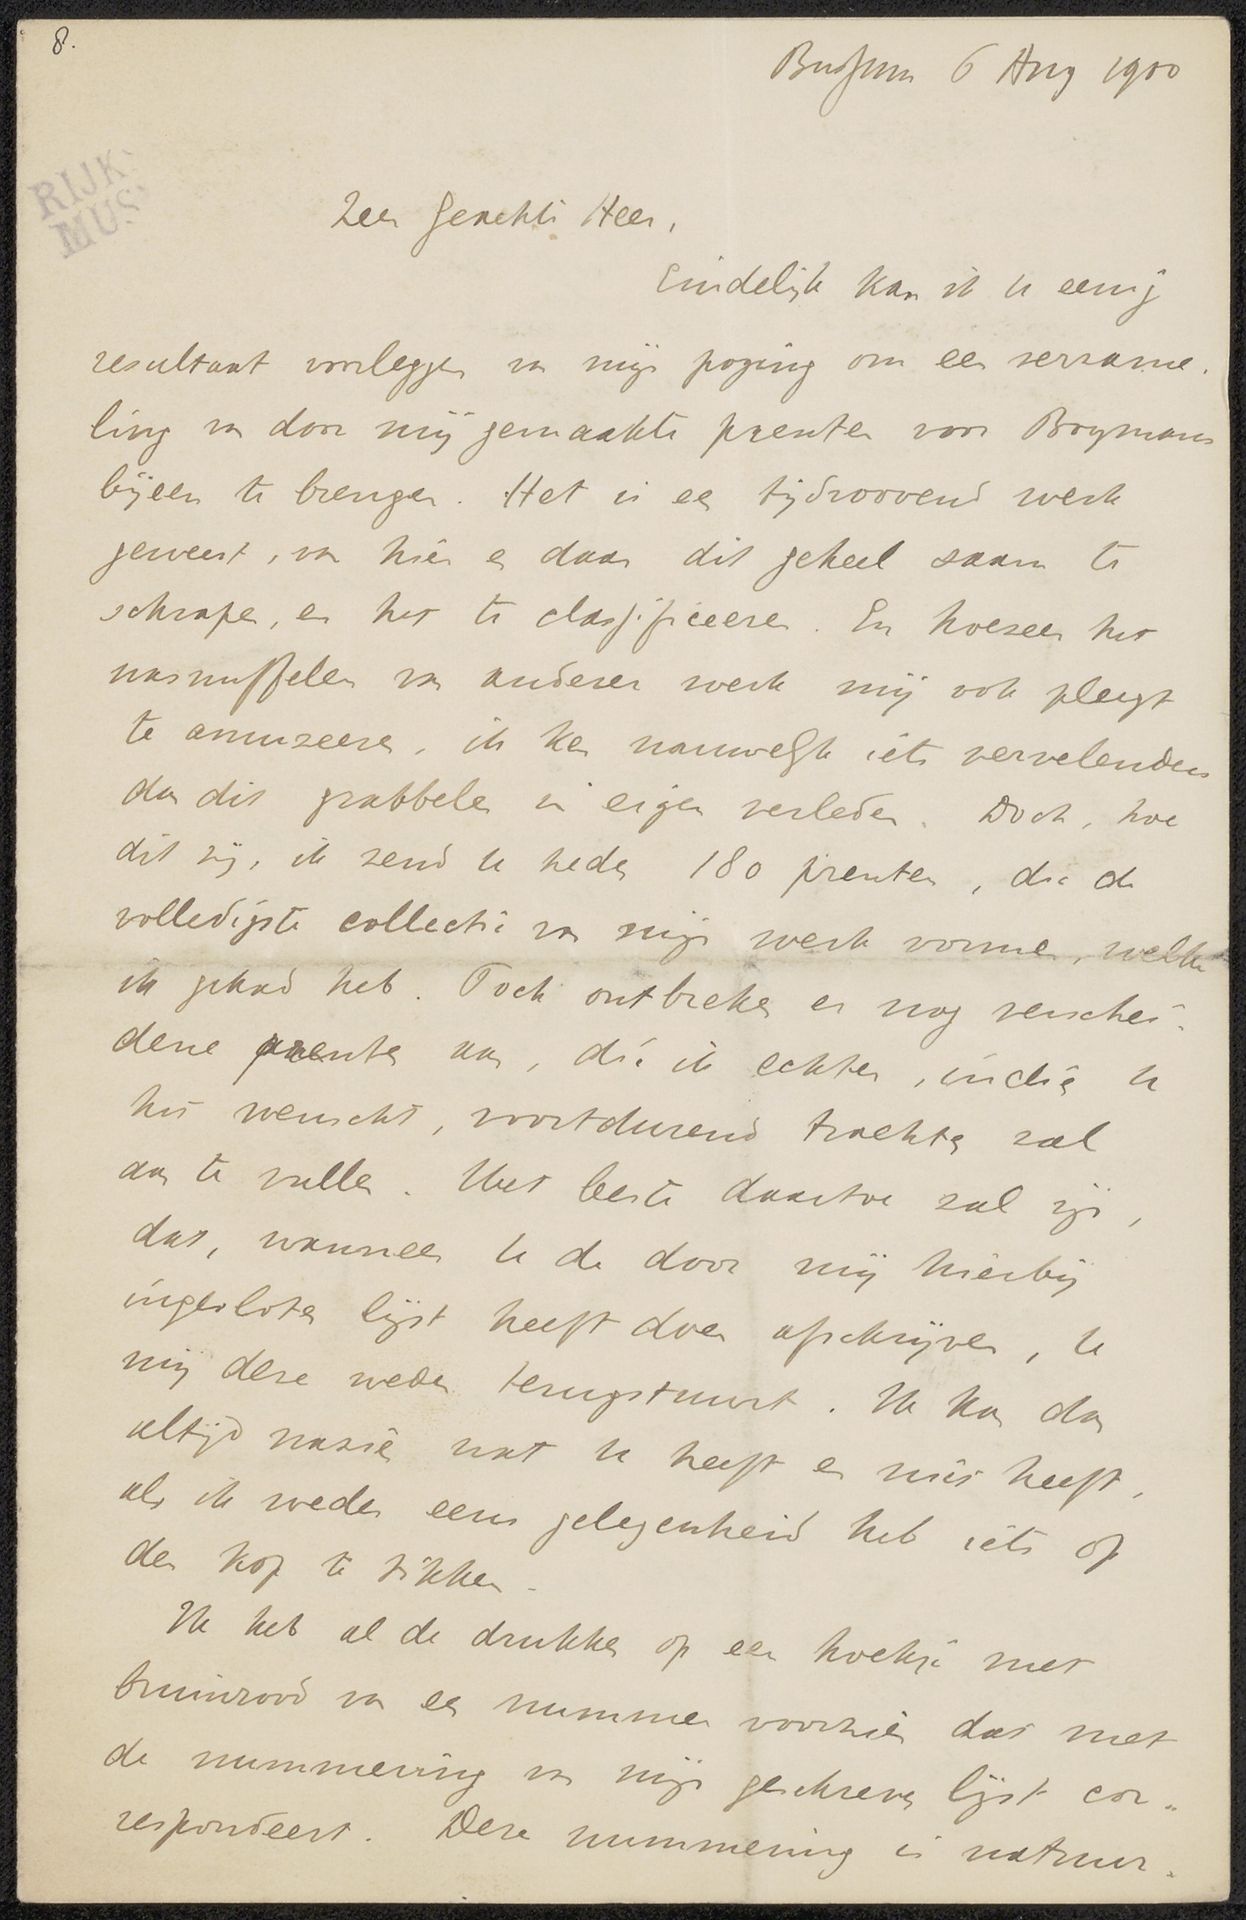 8.
Bussum 6 Aug 1900
RIJK
MUS
Zeer Geachte Heer,
Eindelijk kan ik u eenig
resultaat voorleggen van mijn poging om een verzame-
ling van door mij gemaakte prenten voor Boymans
bijeen te brengen. Het is een tijdroovend werk
geweest, van hier en daar dit geheel saam te
schrapen, en het te classificeeren. En hoezeer het
nasnuffelen van anderer werk mij ook pleegt
te amuzeeren, ik ken nauwelijk iets vervelenders
dan dit grabbelen in eigen verleden. Doch, hoe
dit zij, ik zend u heden 180 prenten, die de
volledigste collectie van mijn werk vormen, welke
ik gehad heb. Toch ontbreken er nog verschei-
dene prenten aan, die ik echter, indien u
het wenscht, voortdurend trachten zal
aan te vullen. Het beste daartoe zal zijn,
dat, wanneer u de door mij hierbij
ingesloten lijst heeft doen afschrijven, u
mij deze weder terugstuurt. Ik kan dan
altijd nazien wat u heeft en niet heeft,
als ik weder eens gelegenheid heb iets op
den kop te tikken.
Ik heb al de drukken op een hoekje met
bruinrood van een nummer voorzien dat met
de nummering van mijn geschreven lijst cor-
respondeert. Deze nummering is natuur-